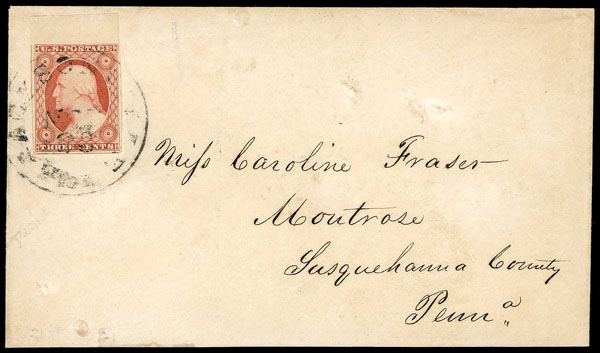 U.S. POSTAGE
THREE CENTS
Miss Caroline Fraser
Montrose
Susquehanna County
Penn<sup>a</sup>„